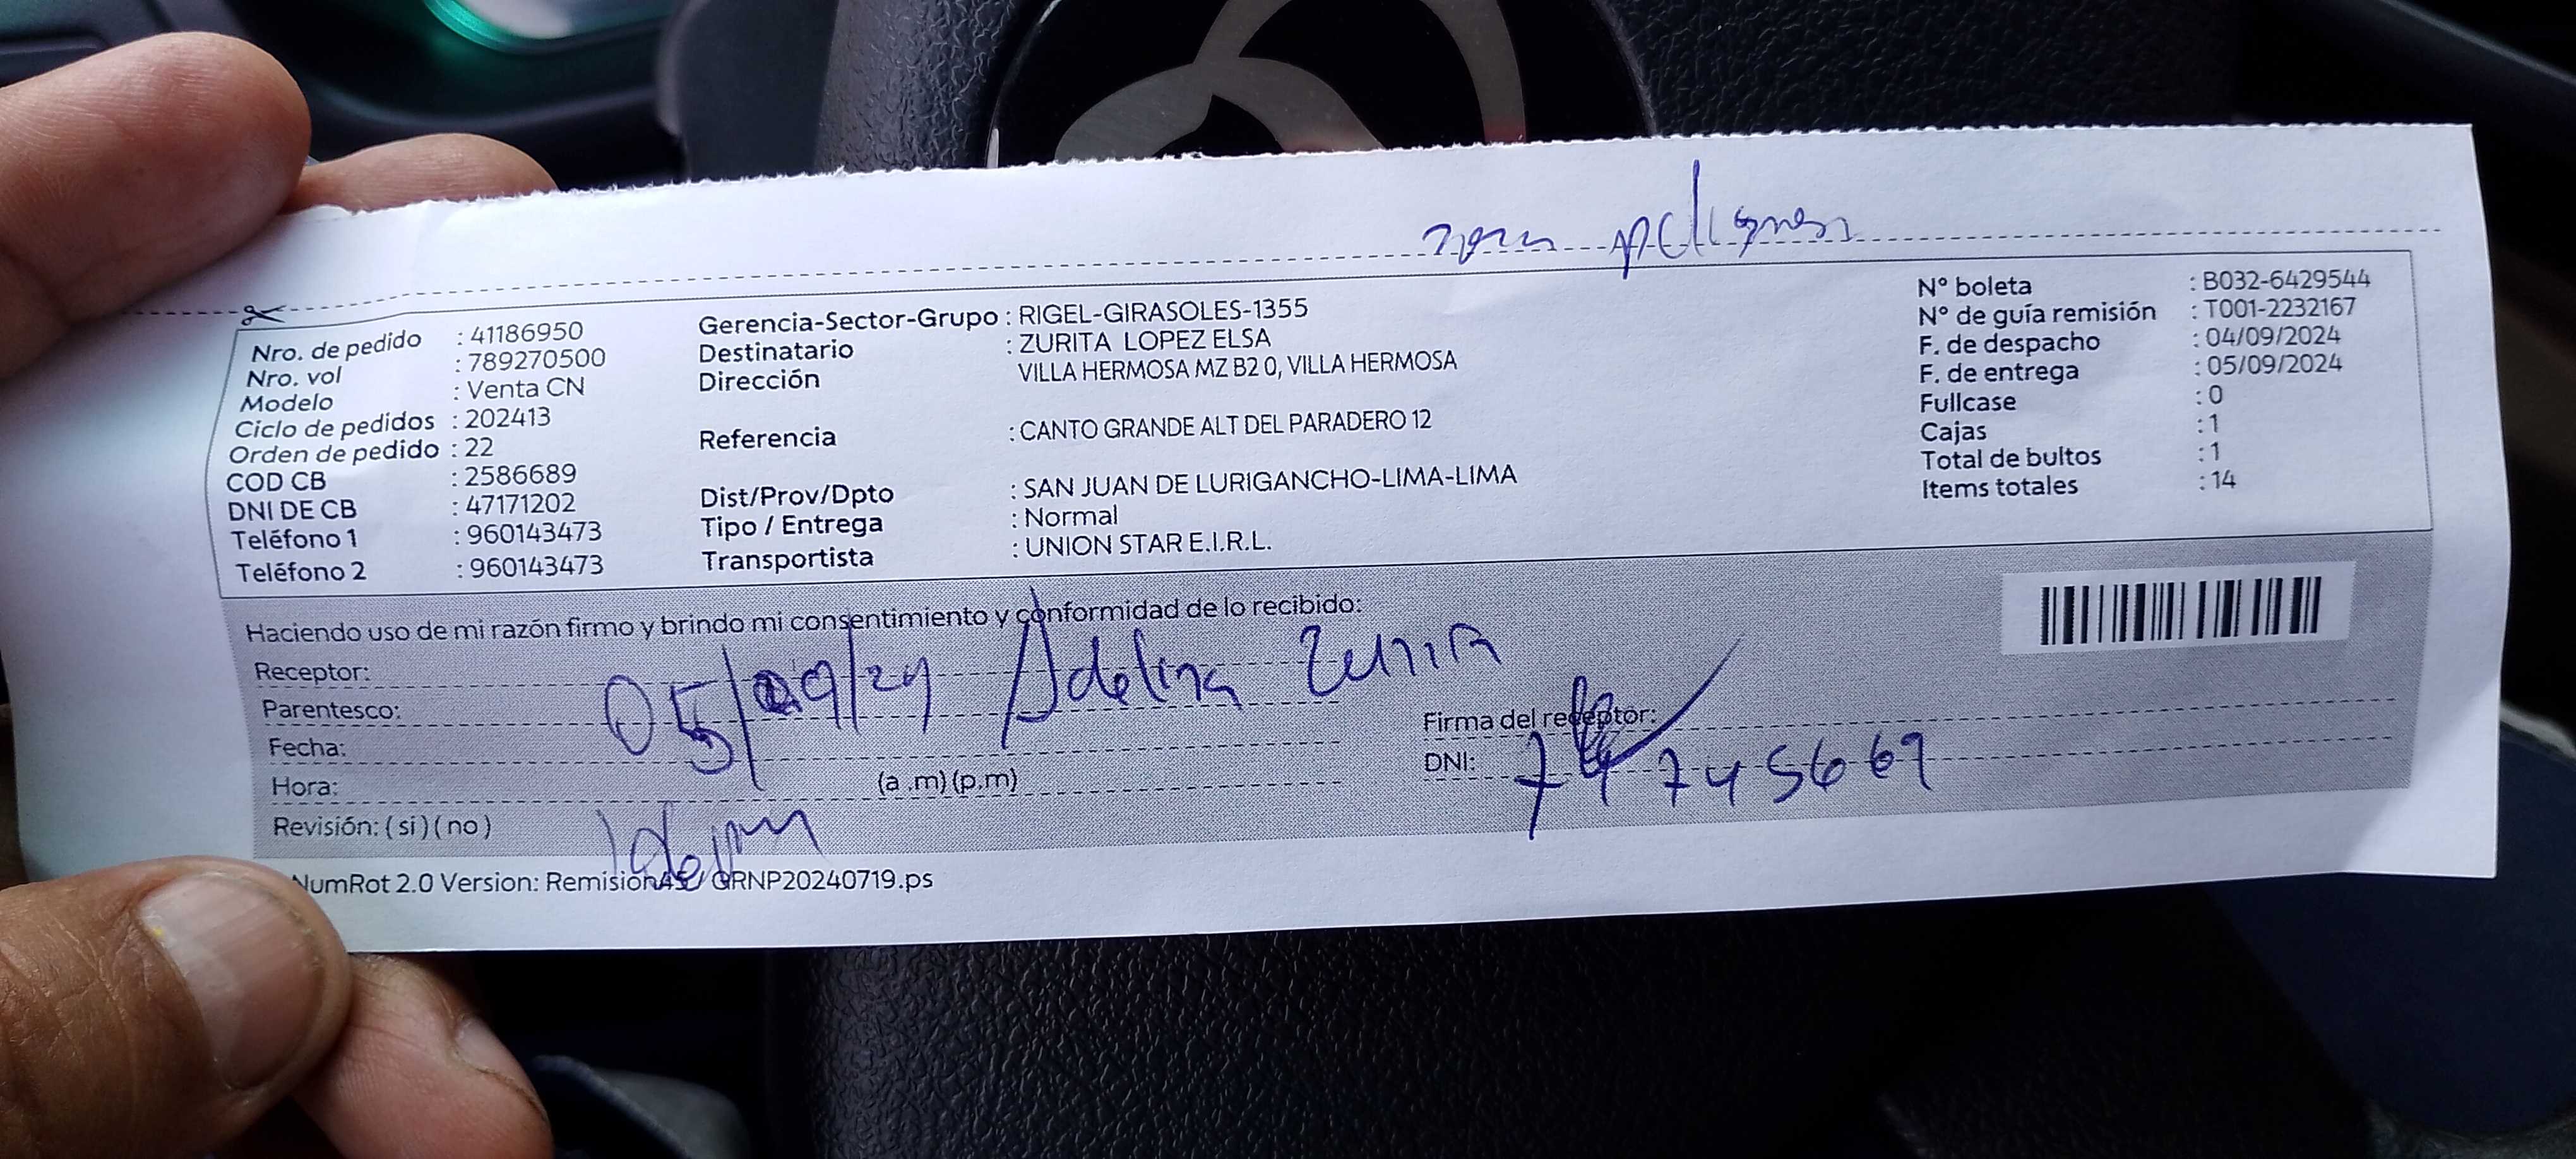 zona peligrosa
Nro. de pedido : 41186950
Nro. vol : 789270500
Modelo : Venta CN
Ciclo de pedidos : 202413
Orden de pedido : 22
COD CB : 2586689
DNI DE CB : 47171202
Teléfono 1 : 960143473
Teléfono 2 : 960143473
Gerencia-Sector-Grupo : RIGEL-GIRASOLES-1355
Destinatario : ZURITA LOPEZ ELSA
Dirección VILLA HERMOSA MZ B2 0, VILLA HERMOSA
Referencia : CANTO GRANDE ALT DEL PARADERO 12
Dist/Prov/Dpto : SAN JUAN DE LURIGANCHO-LIMA-LIMA
Tipo / Entrega : Normal
Transportista : UNION STAR E.I.R.L.
N° boleta : B032-6429544
N° de guía remisión : T001-2232167
F. de despacho : 04/09/2024
F. de entrega : 05/09/2024
Fullcase : 0
Cajas : 1
Total de bultos : 1
Items totales : 14
Haciendo uso de mi razón firmo y brindo mi consentimiento y conformidad de lo recibido:
Receptor:
Parentesco: 05/09/24 Adelina
Fecha:
Hora: (a .m) (p.m)
Revisión: ( si ) ( no )
Firma del receptor:
DNI: 74745669
NumRot 2.0 Version: RemisionA5/ GRNP20240719.ps